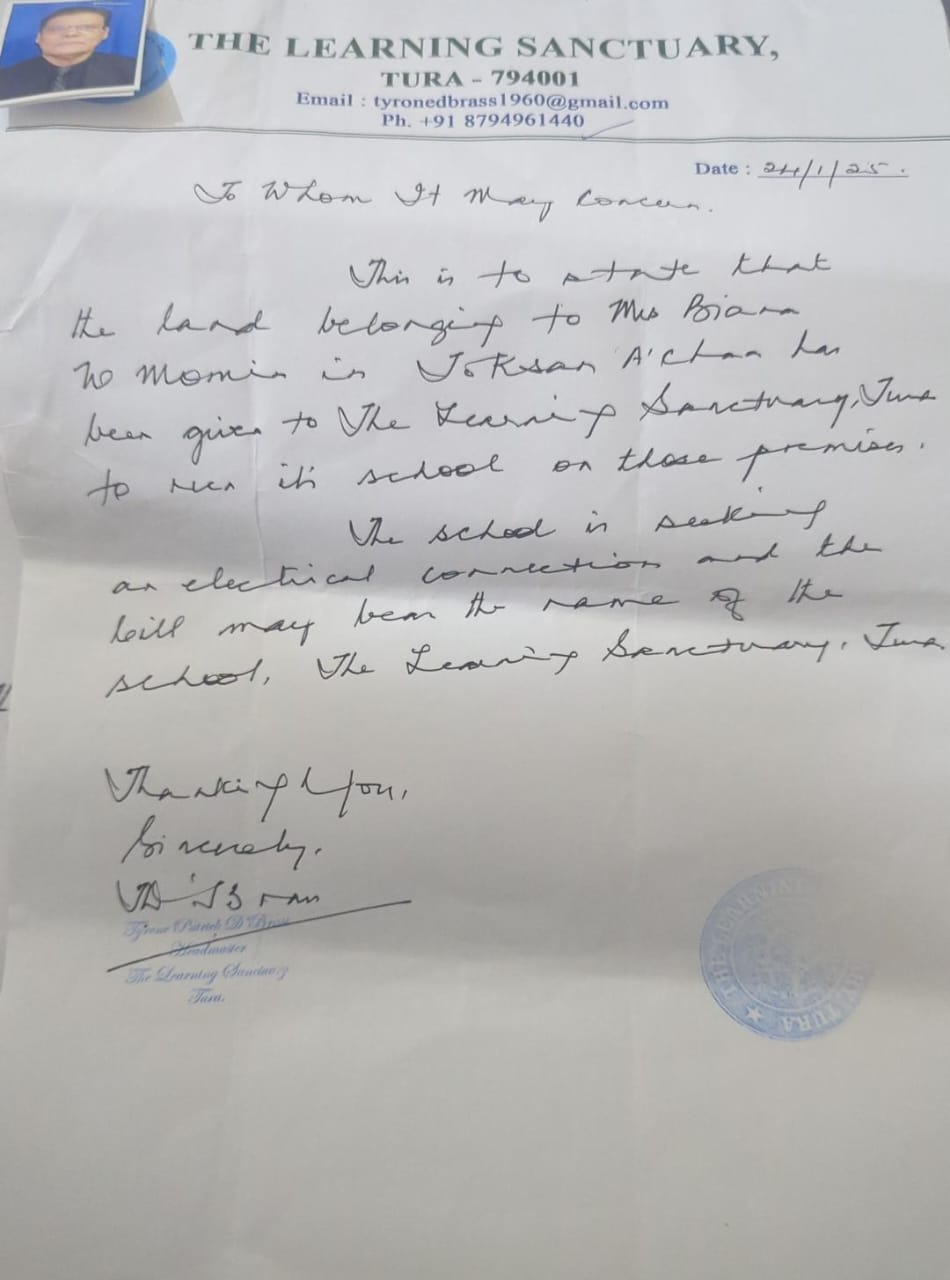 THE LEARNING SANCTUARY,
TURA - 794001
Email : tyronedbrass1960@gmail.com
Ph. +91 8794961440
Date : 24/1/25.
To Whom It May Concern.
This is to state that
the land belonging to Mrs
Momin in A'chan has
been given to The Learning Sanctuary, Tura
to run it's school on those premises.
The school is seeking
an electrical connection and the
bill may bear the name of the
school, The Learning Sanctuary, Tura
Thanking You,
Sincerely,
Tyrone Patrick D'Brass
Headmaster
The Learning Sanctuary
Tura.
THE LEARNING
TURA